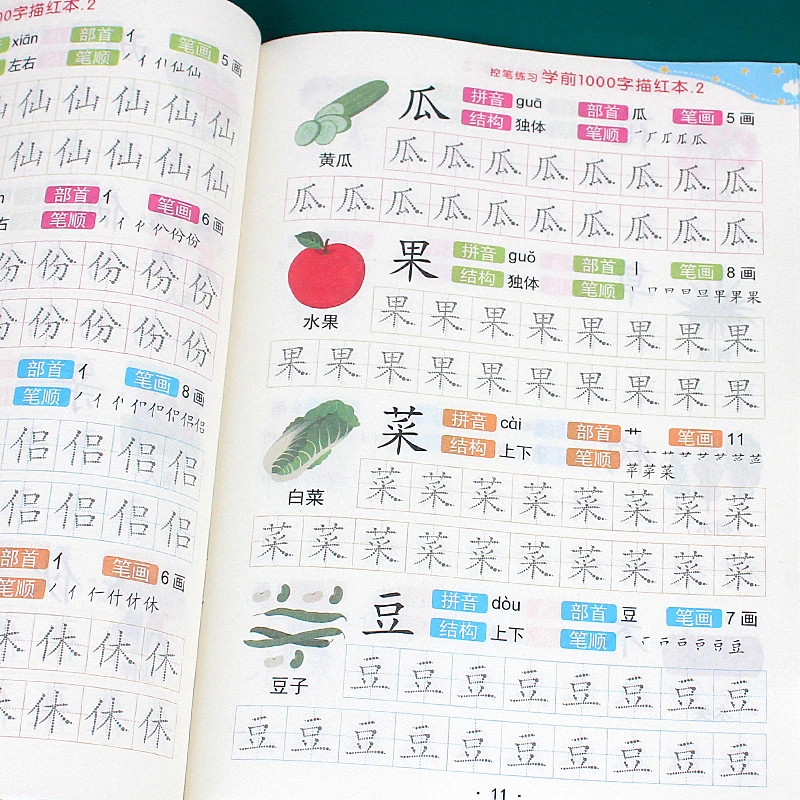 00字描红本.2
xiān 部首 亻 笔画 5 画
左右 笔顺 丿 亻 仙 仙
仙 仙 仙 仙 仙
仙 仙 仙 仙 仙
部首 亻 笔画 6 画
右 笔顺 丿 亻 份 份
份 份 份 份 份
份 份 份 份 份
部首 亻 笔画 8 画
笔顺 丿 亻 侣 侣
侣 侣 侣 侣
侣 侣 侣 侣
部首 亻 笔画 6 画
笔顺 丿 亻 什 休 休
休 休 休 休
休 休 休 休
控笔练习 学前1000字描红本.2
瓜 拼音 guā 部首 瓜 笔画 5 画
结构 独体 笔顺 瓜
黄瓜
瓜 瓜 瓜 瓜 瓜 瓜 瓜 瓜
瓜 瓜 瓜 瓜 瓜 瓜 瓜 瓜 瓜 瓜
果 拼音 guǒ 部首 丨 笔画 8 画
结构 独体 笔顺 丨 口 日 旦 早 果 果
水果
果 果 果 果 果 果 果 果
果 果 果 果 果 果 果 果 果 果
菜 拼音 cài 部首 艹 笔画 11
结构 上下 笔顺 一 艹
菜
白菜
菜 菜 菜 菜 菜 菜 菜 菜
菜 菜 菜 菜 菜 菜 菜 菜 菜 菜
豆 拼音 dòu 部首 豆 笔画 7 画
结构 上下 笔顺 一 豆
豆子
豆 豆 豆 豆 豆 豆 豆 豆
豆 豆 豆 豆 豆 豆 豆 豆 豆 豆
· 11 ·